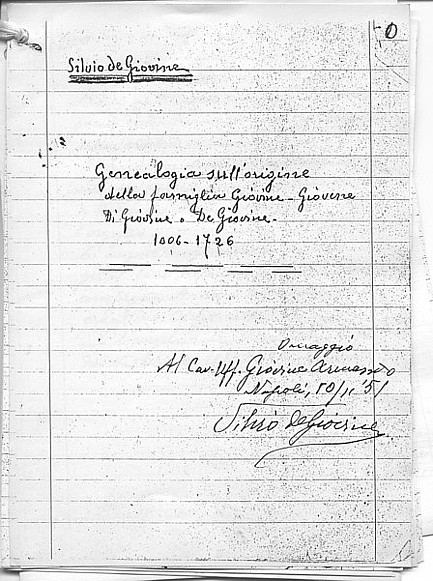 0
Silvio de Giovine
Genealogia sull'origine
della famiglia Giovine - Giovene
Di Giovine o De Giovine -
1006 - 1726
Omaggio
Al Cav. Uff. Giovine
Napoli, 10/11 '51
Silvio de Giovine